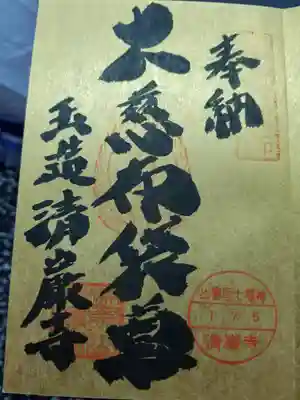 奉納
大慈布袋尊
玉造清巖寺
1.7.5
清巖寺